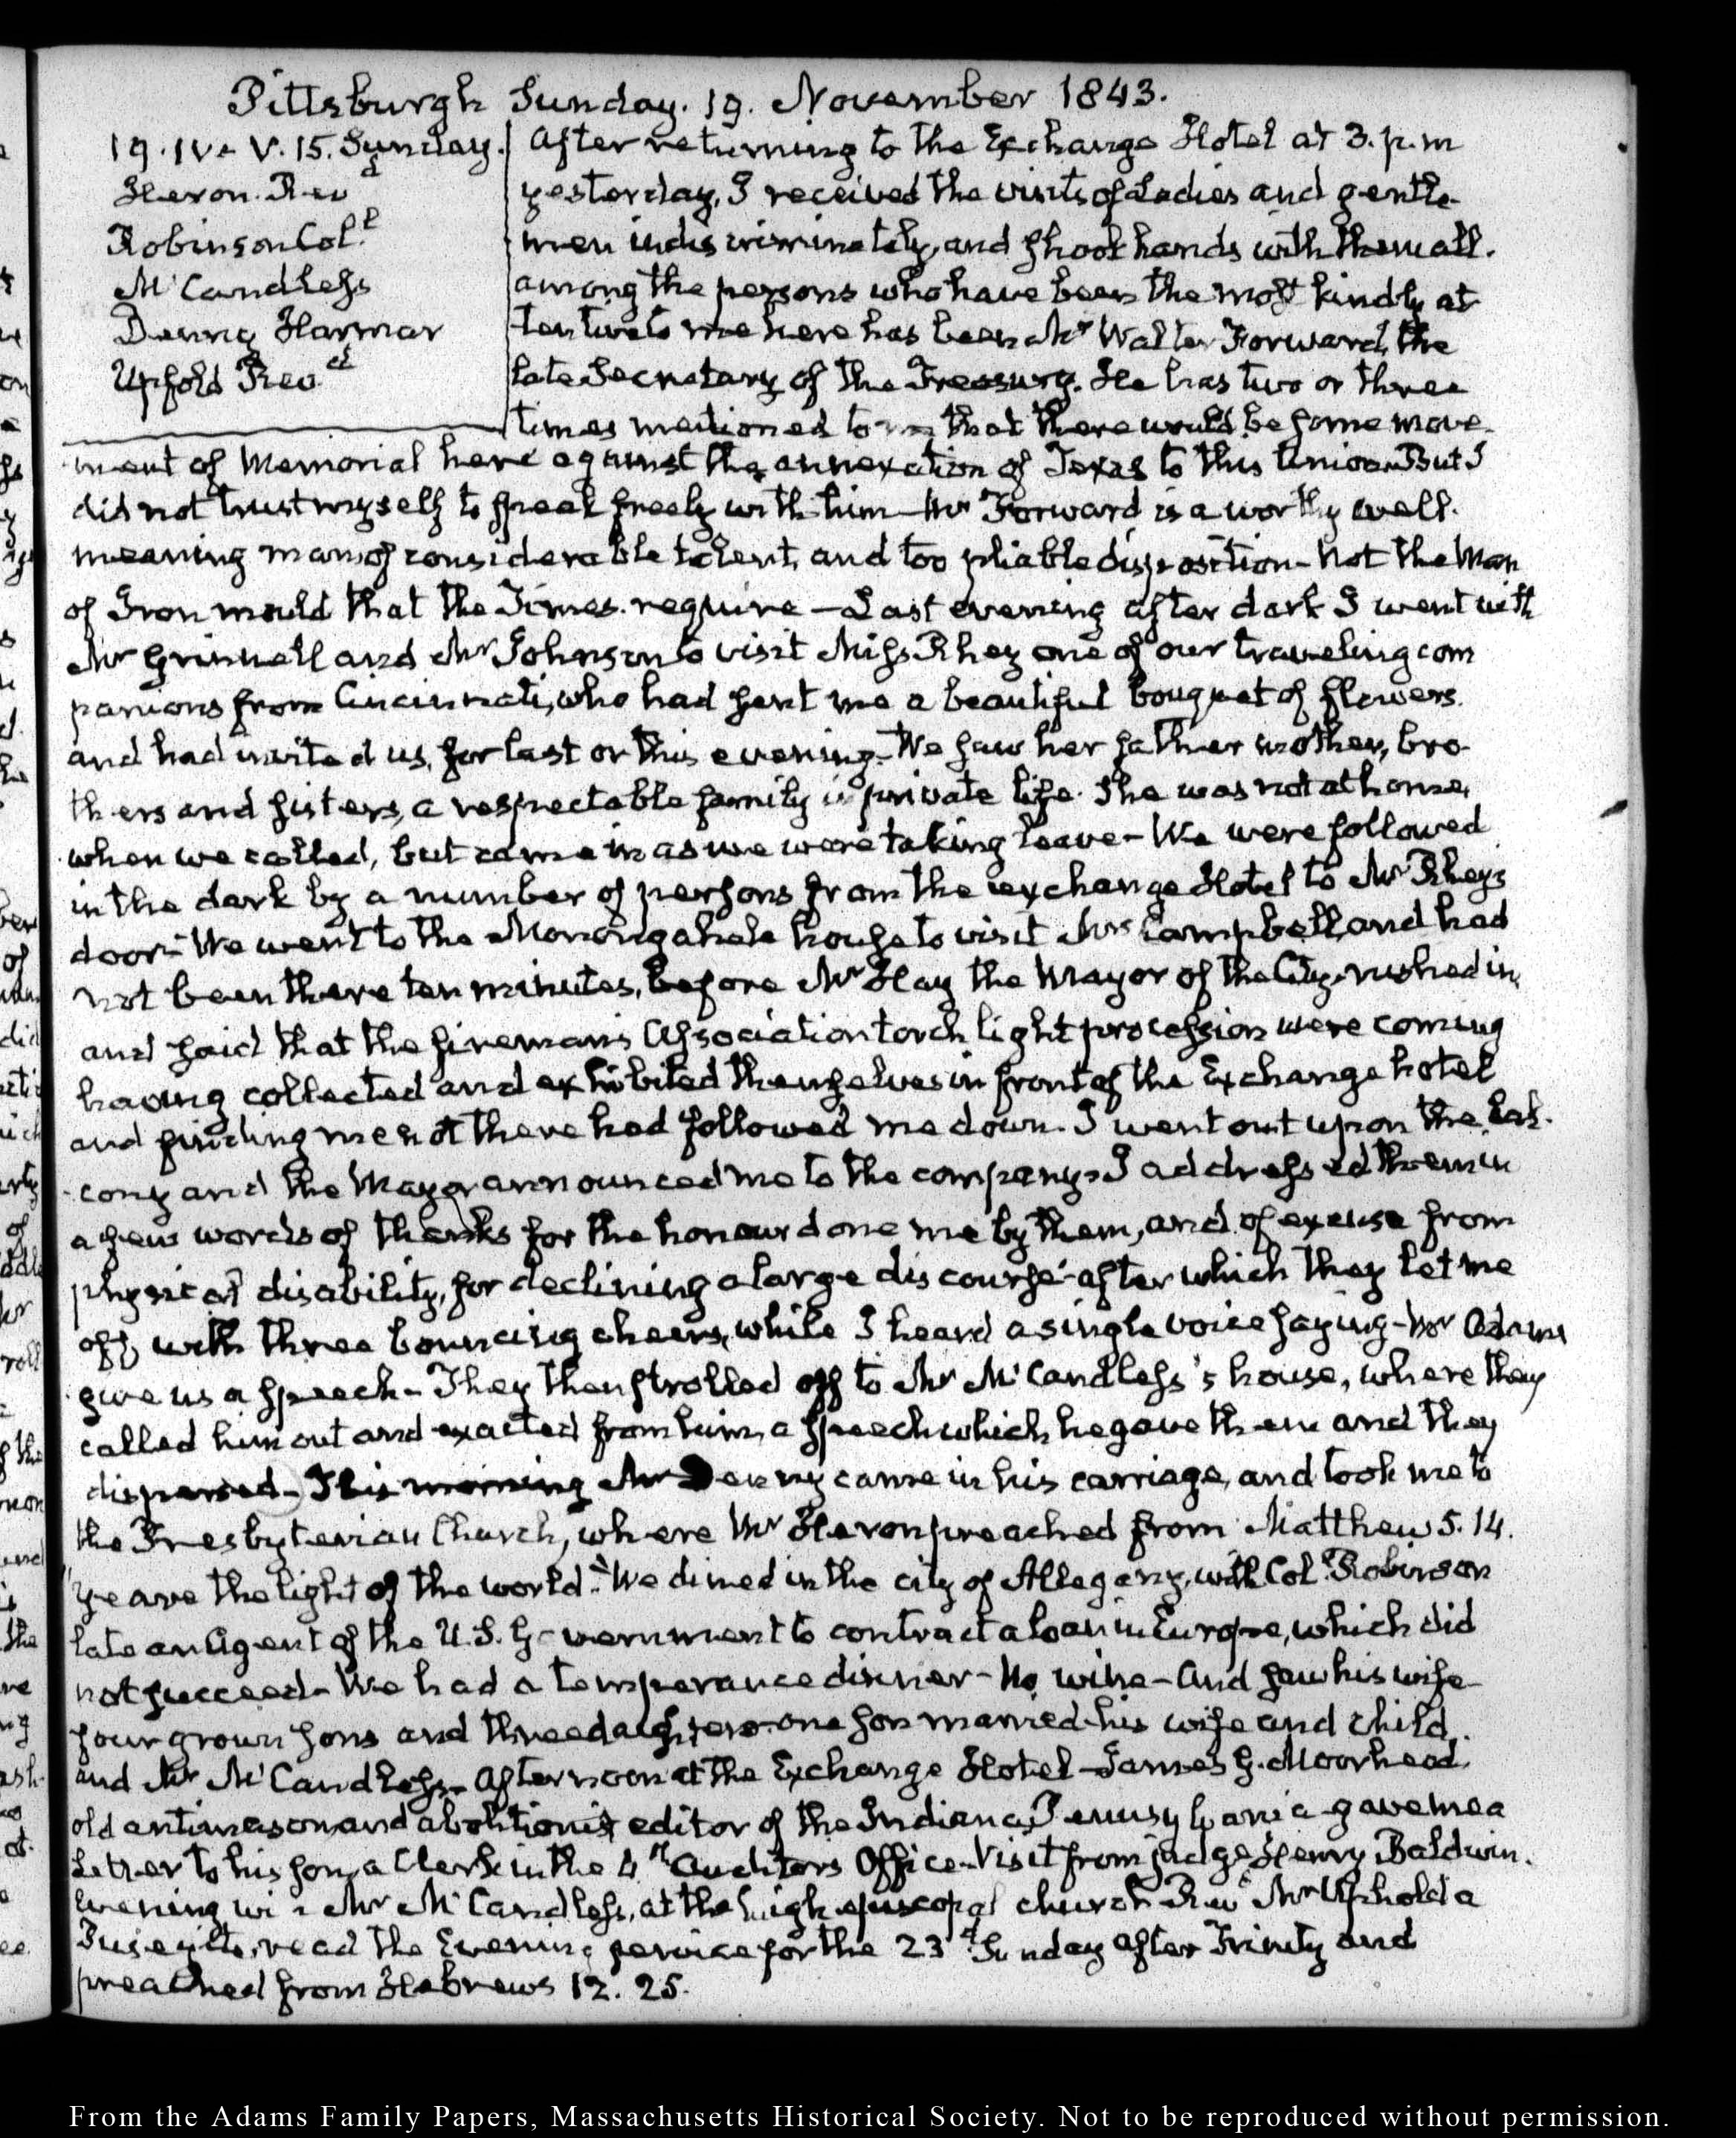 Pittsburgh Sunday. 19. November 1843.
19. IV. V. 15. Sunday.
Heron. Revd
Robinson Col.l
McCandless
Denny Harmar
Upfold Revd
After returning to the Exchange Hotel at 3. p.m
yesterday, I received the visits of Ladies and gentle-
men indiscriminately, and shook hands with them all.
among the persons who have been the most kindly at
tentive to me here has been Mr Walter Forward, the
late Secretary of the Treasury. He has two or three
times mentioned to me that there would be some move-
ment of Memorial here against the annexation of Texas to this Union. But I
did not trust myself to speak freely with him—Mr Forward is a worthy well-
meaning man, of considerable talent, and too pliable disposition—not the Man
of Iron mould that the Times require—Last evening after dark I went with
Mr Grinnell and Mr Johnson to visit Miss Rhey one of our traveling com
panions from Cincinnati, who had sent me a beautiful bouquet of flowers.
and had invited us, for last or this evening—We saw her father mother, bro-
thers and sisters, a respectable family in private life. She was not at home,
when we called, but came in as we were taking leave—We were followed
in the dark by a number of persons from the exchange Hotel to Mr Rheys
door—We went to the Monongahela house to visit Mrs Campbell, and had
not been there ten minutes, before Mr Hay the Mayor of the City, rushed in,
and said that the firemans Association torch light procession were coming
having collected and exhibited themselves in front of the Exchange hotel
and finding me not there had followed me down. I went out upon the Bal-
cony and the Mayor announced me to the company. I addressed them in
a few words of thanks for the honour done me by them, and of excuse from
physical disability, for declining a large discourse—after which they let me
off, with three bouncing cheers, while I heard a single voice saying—Mr Adams
give us a speech—They then strolled off to Mr McCandless's house, where they
called him out and exacted from him, a speech which he gave them and they
dispersed—This morning Mr Denny came in his carriage, and took me to
the Presbyterian Church, where Mr Heron preached from Matthew 5. 14.
"Ye are the light of the world." We dined in the city of Allegany, with Coll Robinson
late an Agent of the U.S. Government to contract a loan in Europe, which did
not succeed—We had a temperance dinner—No wine—And saw his wife
four grown sons and three daughters—one son married—his wife and child.
and Mr McCandless—Afternoon at the Exchange Hotel—James G. Moorhead,
old antimason, and abolitionist editor of the Indiana, Pennsylvania gave me a
Letter to his son, a Clerk in the 4th Auditors Office—Visit from judge Henry Baldwin.
Evening with Mr McCandless, at the high episcopal church Revd Mr Uphold a
Puseyite, read the Evening service for the 23d Sunday after Trinity and
preached from Hebrews 12. 25.
From the Adams Family Papers, Massachusetts Historical Society. Not to be reproduced without permission.